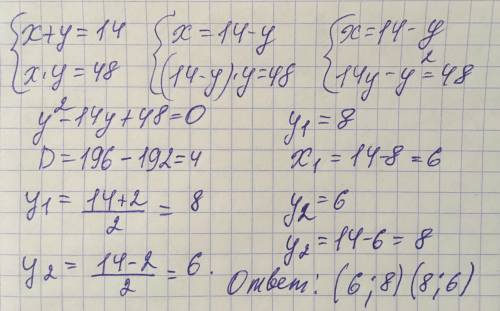 {x+y=14 {x=14-y {x=14-y
{x·y=48 {(14-y)·y=48 {14y-y²=48
y²-14y+48=0
D=196-192=4
y₁ = (14+2)/2 = 8
y₂ = (14-2)/2 = 6.
y₁=8
x₁=14-8=6
y₂=6
y₂=14-6=8
Ответ: (6;8)(8;6)